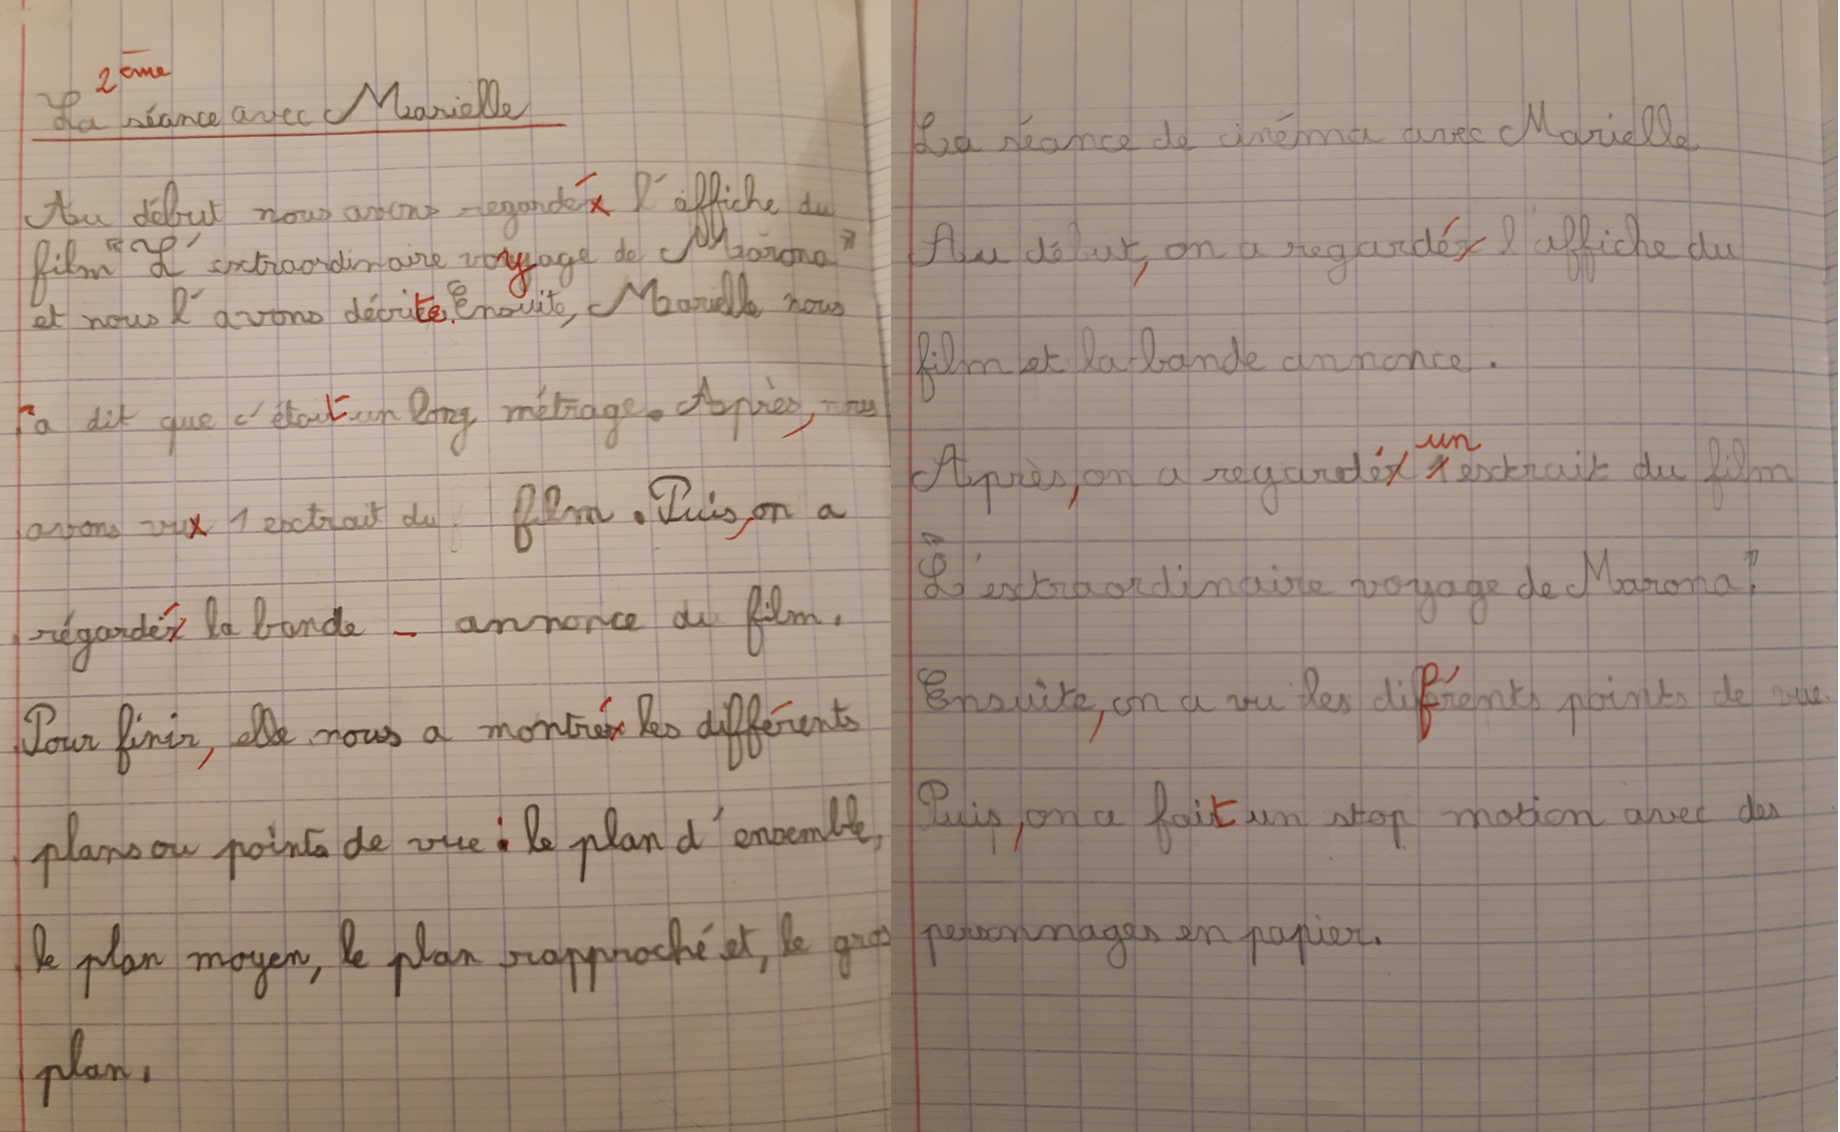 2ème
La séance avec Marielle
Au début nous avons regardéx l'affiche du
film "L'extraordinaire voyage de Marona"
et nous l'avons décrite. Ensuite, Marielle nous
a dit que c'était un long métrage. Après, nous
avons vux 1 extrait du film. Puis, on a
régardéx la bande - annonce du film.
Pour finir, elle nous a montréx les différents
plans ou points de vue : le plan d'ensemble,
le plan moyen, le plan rapproché et, le gros
plan.
La séance de cinéma avec Marielle
Au début, on a regardéx l'affiche du
film et la bande annonce.
un
Après, on a regardéx 1 extrait du film
"L'extraordinaire voyage de Marona".
Ensuite, on a vu les différents points de vue.
Puis, on a fait un stop motion avec des
personnages en papier.